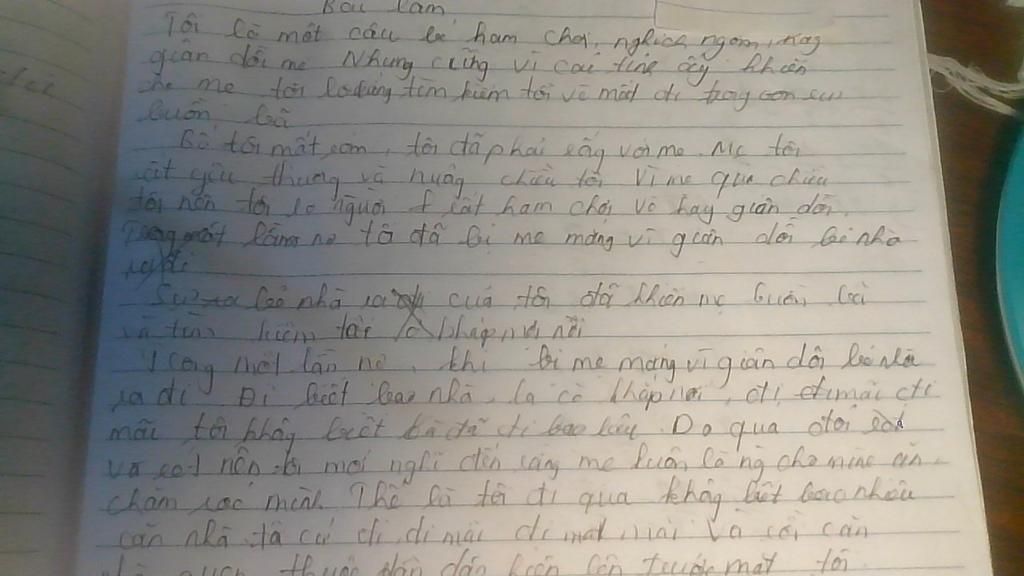 Bài làm
Tôi là một cậu bé ham chơi, nghịch ngợm, hay
giận dỗi mẹ Nhưng cũng vì cái tính ấy khiến
cho mẹ tôi tìm kiếm tôi về mất đi trong
buồn bã
Bố tôi mất sớm, tôi đã phải sống với mẹ. Mẹ tôi
rất yêu thương và nuông chiều tôi Vì mẹ quá chiều
tôi nên tôi là người rất ham chơi và hay giận dỗi.
một lần nọ tôi đã bị mẹ mắng vì giận dỗi bỏ nhà
ra đi
bỏ nhà ra đi của tôi đã khiến mẹ buồn bã
và tìm kiếm tôi ở khắp nơi
Trong một lần nọ, khi bị mẹ mắng vì giận dỗi bỏ nhà
ra đi Đi biết bao nhà, la cà khắp nơi, đi, đi mãi đi
mãi tôi không biết là đã đi bao lâu. Do quá đói rét
và nên tôi mới nghĩ đến rằng mẹ luôn là người cho mình ăn,
chăm sóc mình. Thế là tôi đi qua không biết bao nhiêu
căn nhà tôi cứ đi, đi mãi đi mãi mãi Và cái căn
nhà quen thuộc dần dần hiện lên trước mắt tôi